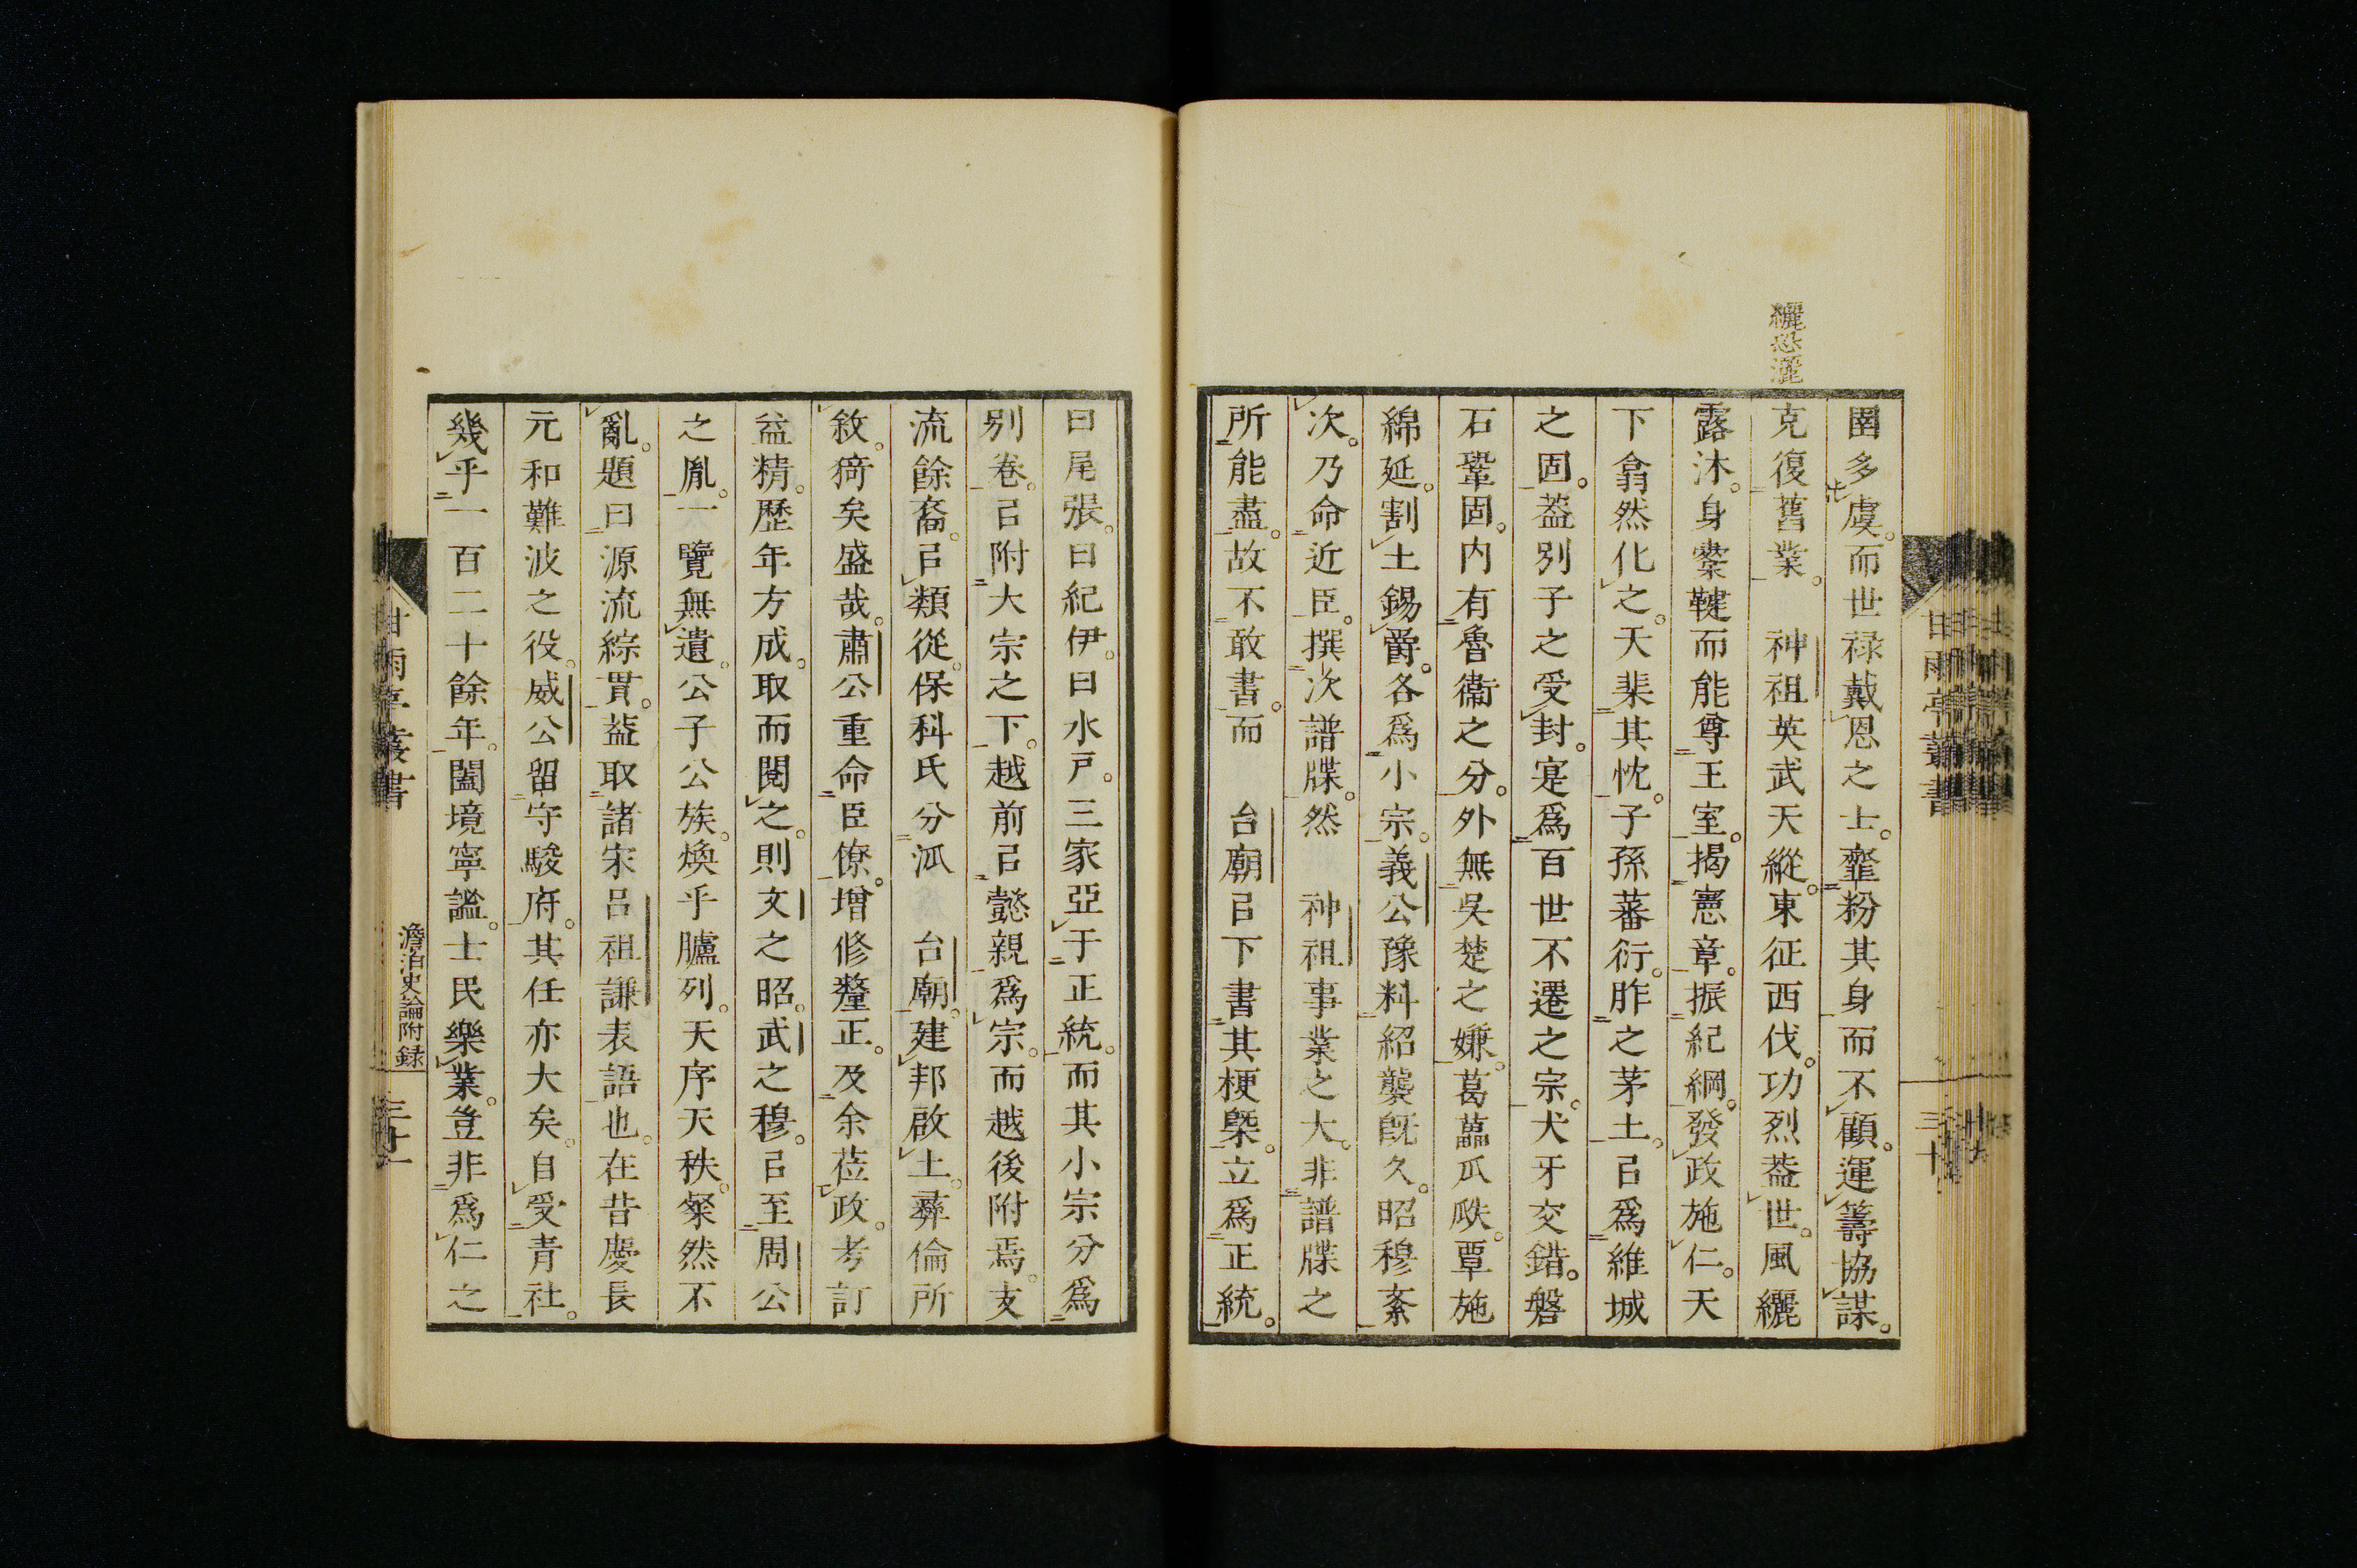 纚恐灑
圉多虞。而世禄戴恩之士。虀粉其身而不顧。運籌協謀。
克復舊業。神祖英武天縱。東征西伐。功烈葢世。風纚
露沐。身櫜鞬而能尊王室。揭憲章。振紀綱。發政施仁。天
下翕然化之。天棐其忱。子孫蕃衍。胙之茅土。㠯爲維城
之固。葢別子之受封。寔爲百世不遷之宗。犬牙交錯。磐
石鞏固。内有魯衞之分。外無吳楚之嫌。葛藟瓜瓞。覃施
綿延。割土錫爵。各爲小宗。義公豫料紹襲旣久。昭穆紊
次。乃命近臣。撰次譜牒。然神祖事業之大。非譜牒之
所能盡。故不敢書。而台廟㠯下書其梗槩。立爲正統。
甘雨亭叢書
三十
曰尾張。曰紀伊。曰水戸。三家亞于正統。而其小宗分爲
別卷。㠯附大宗之下。越前㠯懿親爲宗。而越後附焉。支
流餘裔。㠯類從。保科氏分派台廟。建邦啟土。彝倫所
敘。猗矣盛哉。肅公重命臣僚。增修釐正。及余莅政。考訂
益精。歷年方成。取而閱之。則文之昭。武之穆。㠯至周公
之胤。一覽無遺。公子公族。煥乎臚列。天序天秩。粲然不
亂。題曰源流綜貫。葢取諸宋呂祖謙表語也。在昔慶長
元和難波之役。威公留守駿府。其任亦大矣。自受青社。
幾乎一百二十餘年。闔境寧謐。士民樂業。豈非爲仁之
甘雨亭叢書
澹泊史論附録